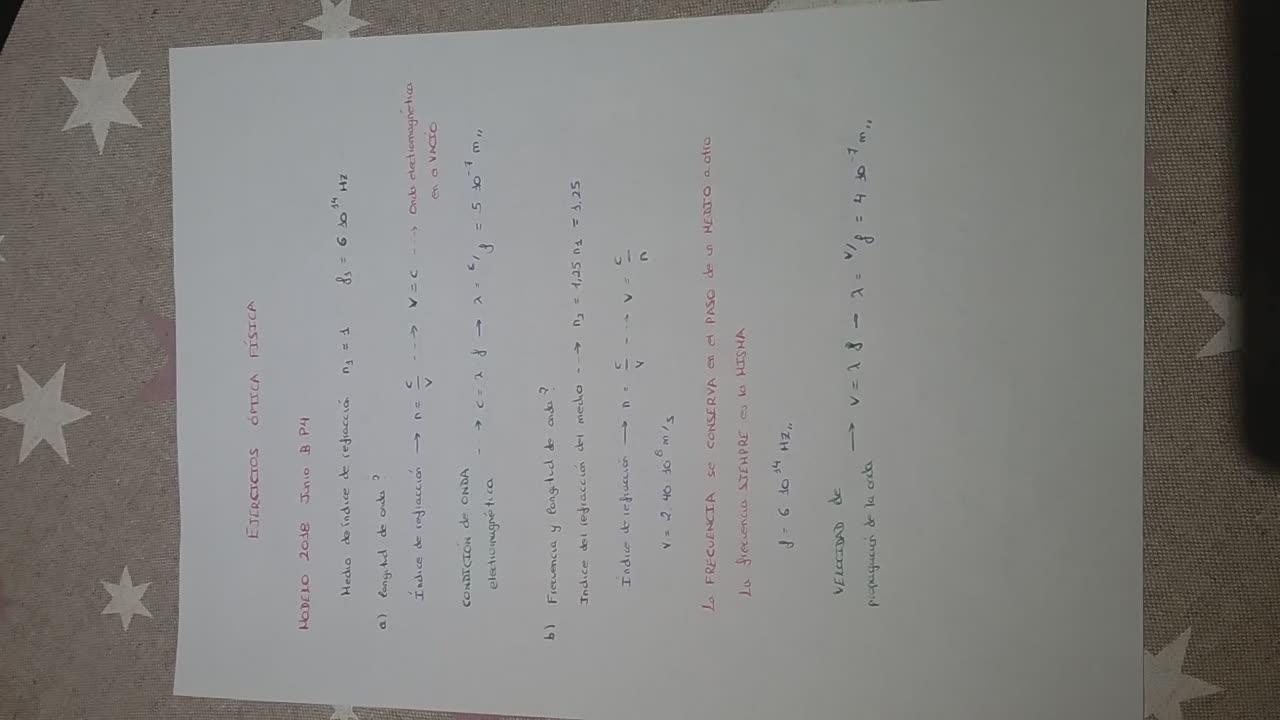 EJERCICIOS ÓPTICA FÍSICA
MODELO 2018 Junio B P4
Medio de índice de refracción n₁ = 1 f₁ = 6 10¹⁴ Hz
a) Longitud de onda?
Índice de refracción → n = c/v --→ v = c --→ Onda electromagnética
en a VACÍO
CONDICIÓN de ONDA
electromagnética --→ c = λ f → λ = c/f = 5 10⁻⁷ m,,
b) Frecuencia y longitud de onda?
Indice del refracción del medio --→ n₂ = 1,25 n₁ = 1,25
Índice de refracción → n = c/v --→ v = c/n
v = 2,40 10⁸ m/s
La FRECUENCIA se CONSERVA en el PASO de un MEDIO a otro
La frecuencia SIEMPRE es la MISMA
f = 6 10¹⁴ Hz,,
VELOCIDAD de
propagación de la onda → v = λ f → λ = v/f = 4 10⁻⁷ m,,